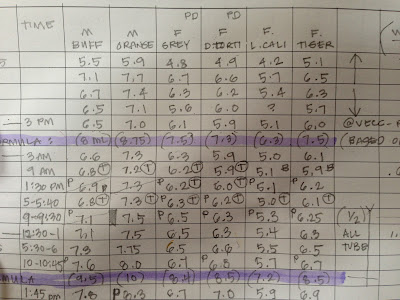 PD PD
TIME M M F F F. F.
BUFF ORANGE GREY D.TORTI L.CALI TIGER
5.5 5.9 4.8 4.9 4.2 5.1
7.1 7.7 6.7 6.6 5.7 6.5
6.7 7.4 6.3 6.2 5.4 6.3
6.5 7.1 5.6 6.0 ? 5.7
3 PM 6.5 7.0 6.1 5.9 5.1 6.0
RMULA: (8 ML) (8.75) (7.5) (7.3) (6.3) (7.5) (BASED O
3 AM 6.6 7.3 6.3 5.9 5.0 6.1
9 AM 6.8 T 7.2 T 6.2 T 5.9 T 5.1 B 5.9 B
1:30 PM P 6.9 P 7.3 6.2 T 6.0 T P 5.1 P 6.2
5-5:40 6.8 T 7.3 T P 6.3 P 6.2 T 5.0 T 6.1 T
9-9:30 P 7.1 7.5 P 6.5 P 6.3 P 5.3 P 6.25 (1/2)
12:30-1 7.1 7.5 6.5 6.3 5.4 6.3 ALL
5:30-6 7.3 7.75 6.5 6.6 5.5 6.5 TUBE
10-10:45 P 7.6 8.0 P 6.7 P 6.8 P 5.7 P 6.7
RMULA (9.5) (10) (8.4) (8.5) (7.2) (8.5)
1:45 PM 7.8 P 8.3 6.7 7.0 5.9 6.9